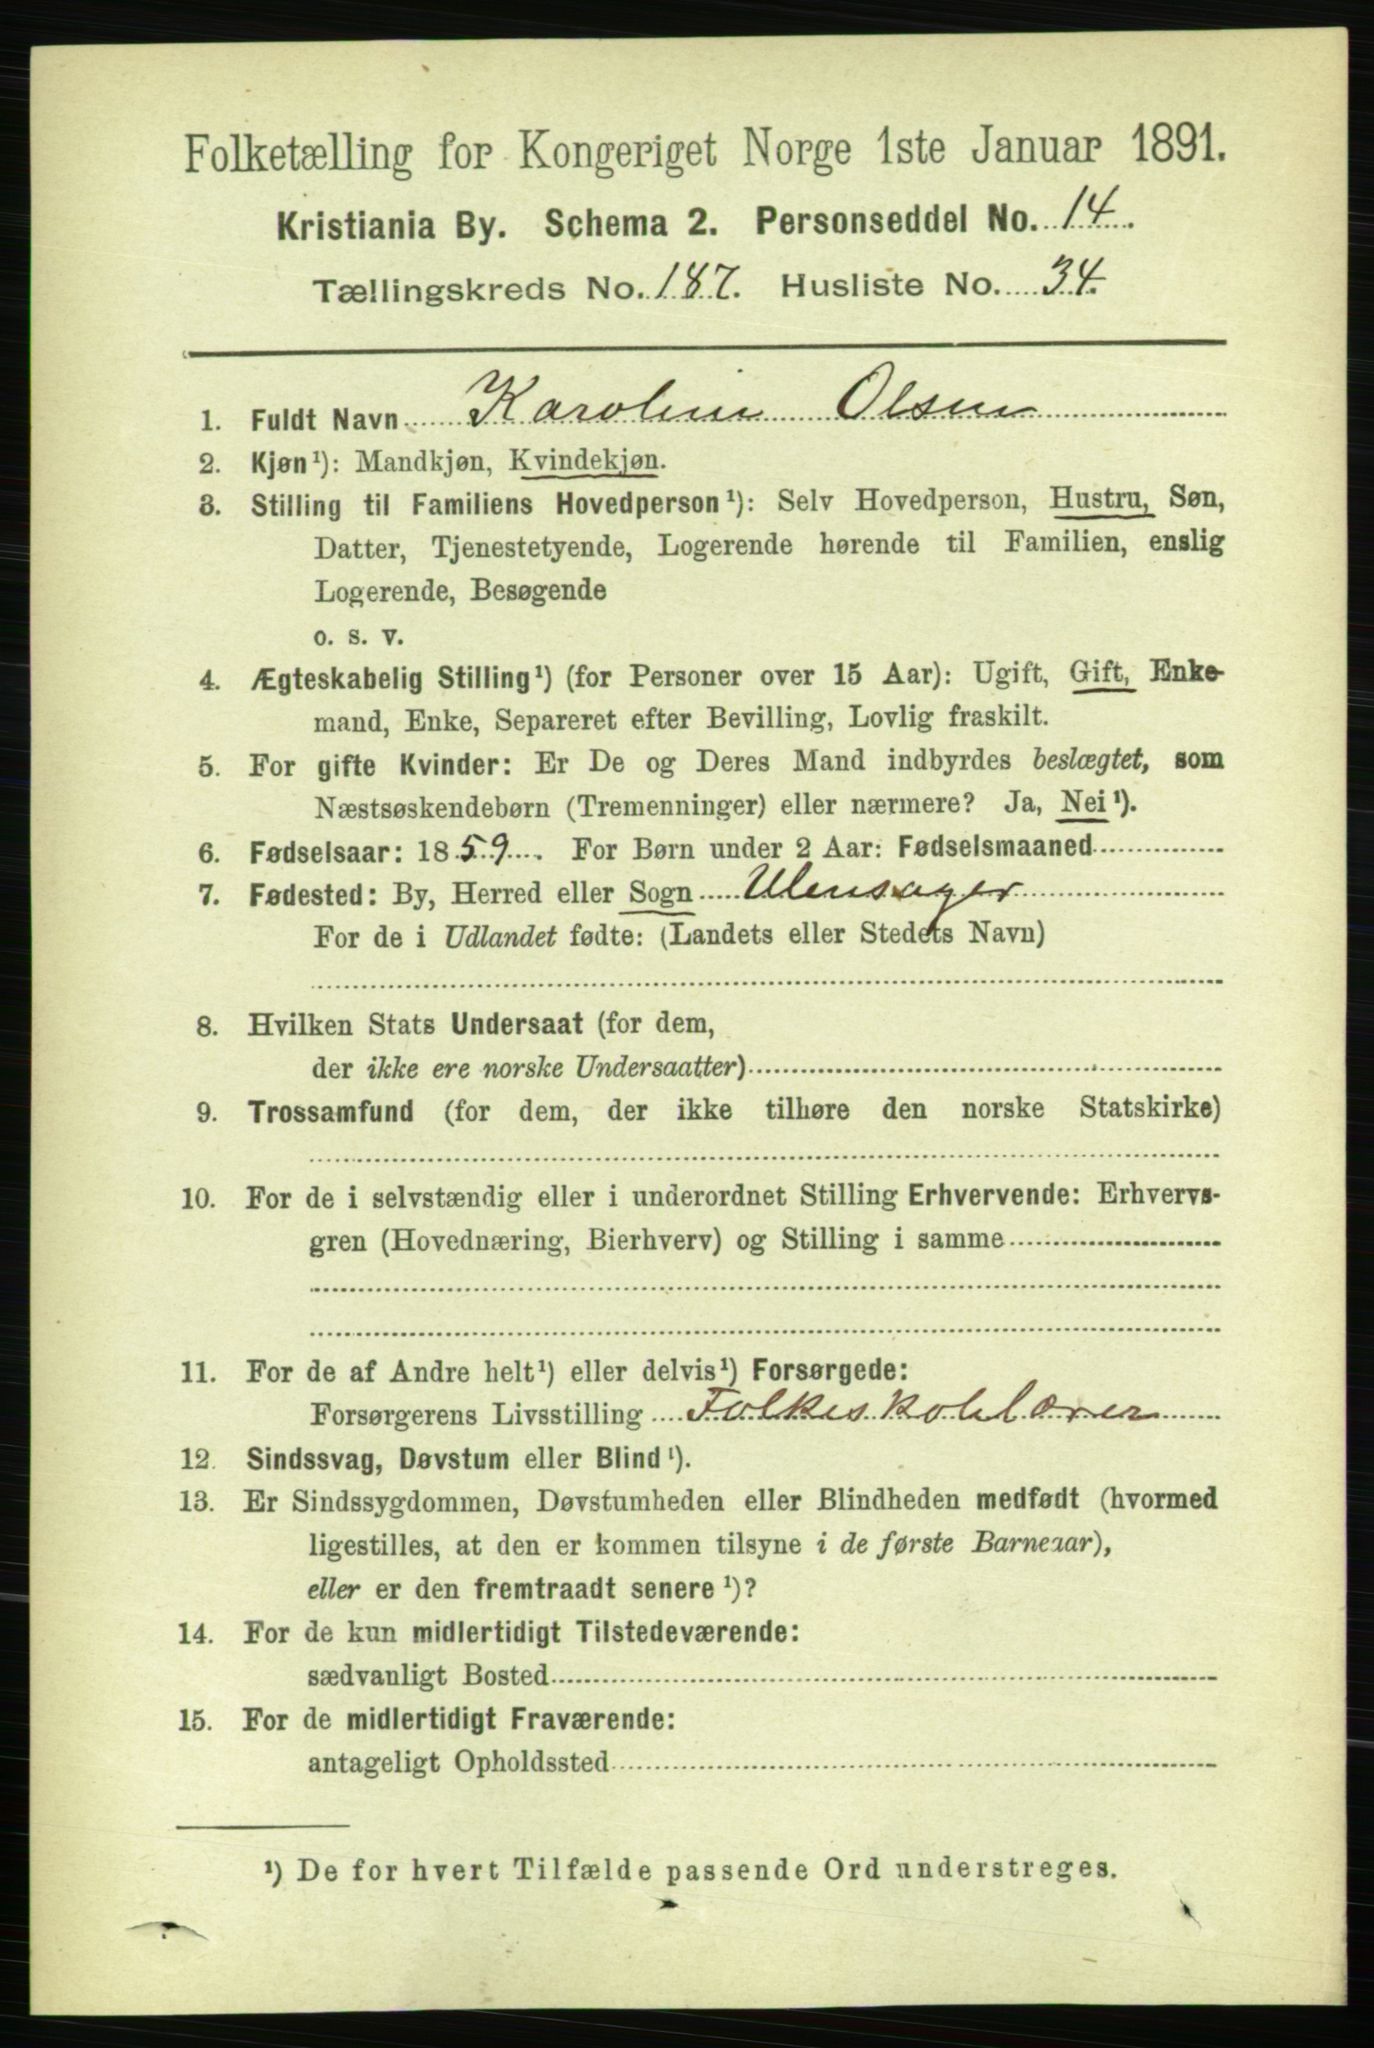 Folketælling for Kongeriget Norge 1ste Januar 1891.
Kristiania By. Schema 2. Personseddel No. 14.
Tællingskreds No. 187. Husliste No. 34.
1. Fuldt Navn Karoline Olsen
2. Kjøn¹): Mandkjøn, Kvindekjøn.
3. Stilling til Familiens Hovedperson¹): Selv Hovedperson, Hustru, Søn,
Datter, Tjenestetyende, Logerende hørende til Familien, enslig
Logerende, Besøgende
o. s. v.
4. Ægteskabelig Stilling¹) (for Personer over 15 Aar): Ugift, Gift, Enke-
mand, Enke, Separeret efter Bevilling, Lovlig fraskilt.
5. For gifte Kvinder: Er De og Deres Mand indbyrdes beslægtet, som
Næstsøskendebørn (Tremenninger) eller nærmere? Ja, Nei¹).
6. Fødselsaar: 1859. For Børn under 2 Aar: Fødselsmaaned
7. Fødested: By, Herred eller Sogn Ulensager
For de i Udlandet fødte: (Landets eller Stedets Navn)
8. Hvilken Stats Undersaat (for dem,
der ikke ere norske Undersaatter)
9. Trossamfund (for dem, der ikke tilhøre den norske Statskirke)
10. For de i selvstændig eller i underordnet Stilling Erhvervende: Erhvervs-
gren (Hovednæring, Bierhverv) og Stilling i samme
11. For de af Andre helt¹) eller delvis¹) Forsørgede:
Forsørgerens Livsstilling Folkeskolelærer
12. Sindssvag, Døvstum eller Blind¹).
13. Er Sindssygdommen, Døvstumheden eller Blindheden medfødt (hvormed
ligestilles, at den er kommen tilsyne i de første Barneaar),
eller er den fremtraadt senere¹)?
14. For de kun midlertidigt Tilstedeværende:
sædvanligt Bosted
15. For de midlertidigt Fraværende:
antageligt Opholdssted
¹) De for hvert Tilfælde passende Ord understreges.